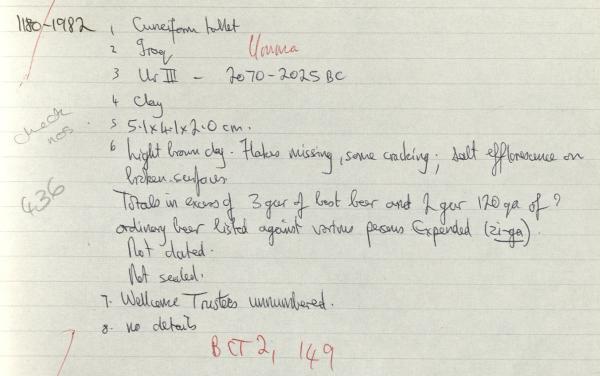 1180-1982 1 Cuneiform tablet
2 Iraq Umma
3 Ur III - 2070-2025 BC
4 Clay
5 5.1x4.1x2.0 cm.
check nos.
6 Light brown clay. Flakes missing, some cracking; salt efflorescence on
broken surfaces
436
Totals in excess of 3 gur of best beer and 2 gur 120 qa of ?
ordinary beer listed against various persons Expended (zi-ga).
Not dated.
Not sealed.
7. Wellcome Trustees unnumbered.
8. no details
BCT 2, 149